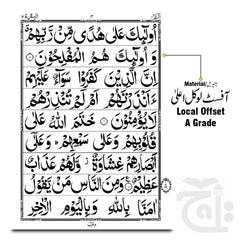 اُولٰٓئِكَ عَلٰى هُدًى مِّنْ رَّبِّهِمْ
وَاُولٰٓئِكَ هُمُ الْمُفْلِحُوْنَ
اِنَّ الَّذِيْنَ كَفَرُوْا سَوَآءٌ عَلَيْهِمْ
ءَاَنْذَرْتَهُمْ اَمْ لَمْ تُنْذِرْهُمْ
لَا يُؤْمِنُوْنَ خَتَمَ اللّٰهُ عَلٰى
قُلُوْبِهِمْ وَعَلٰى سَمْعِهِمْ وَعَلٰٓى
اَبْصَارِهِمْ غِشَاوَةٌ وَّلَهُمْ عَذَابٌ
عَظِيْمٌ وَمِنَ النَّاسِ مَنْ يَّقُوْلُ
اٰمَنَّا بِاللّٰهِ وَبِالْيَوْمِ الْاٰخِرِ
Material/
آفسٹ لوکل اعلیٰ
Local Offset
A Grade